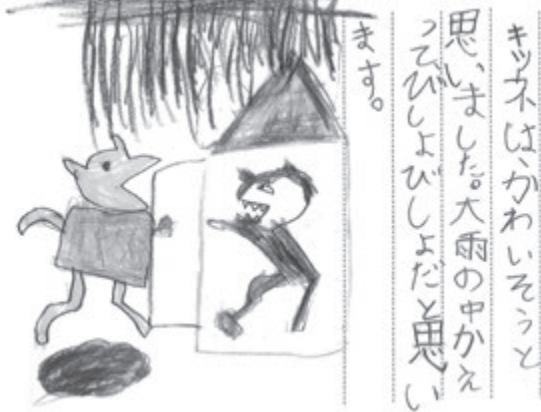 キツネは、かわいそうと
思いました。大雨の中かえ
ってびしょびしょだと思い
ます。